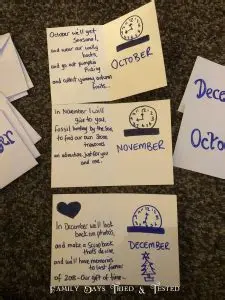 October we'll get
Seasonal,
and wear our welly
boots,
and go out pumpkin
Picking
and collect yummy autumn
fruits..
OCTOBER
In November I will
give to you,
Fossil hunting by the sea,
to find our own stone
treasures
an adventure just for you
and me.
NOVEMBER
In December we'll look
back on photos,
and make a scrapbook
that's divine,
and we'll have memories
to last forever
of 2018 - Our gift of time.
DECEMBER
Dece
Octo
FAMILY DAYS TRIED & TESTED